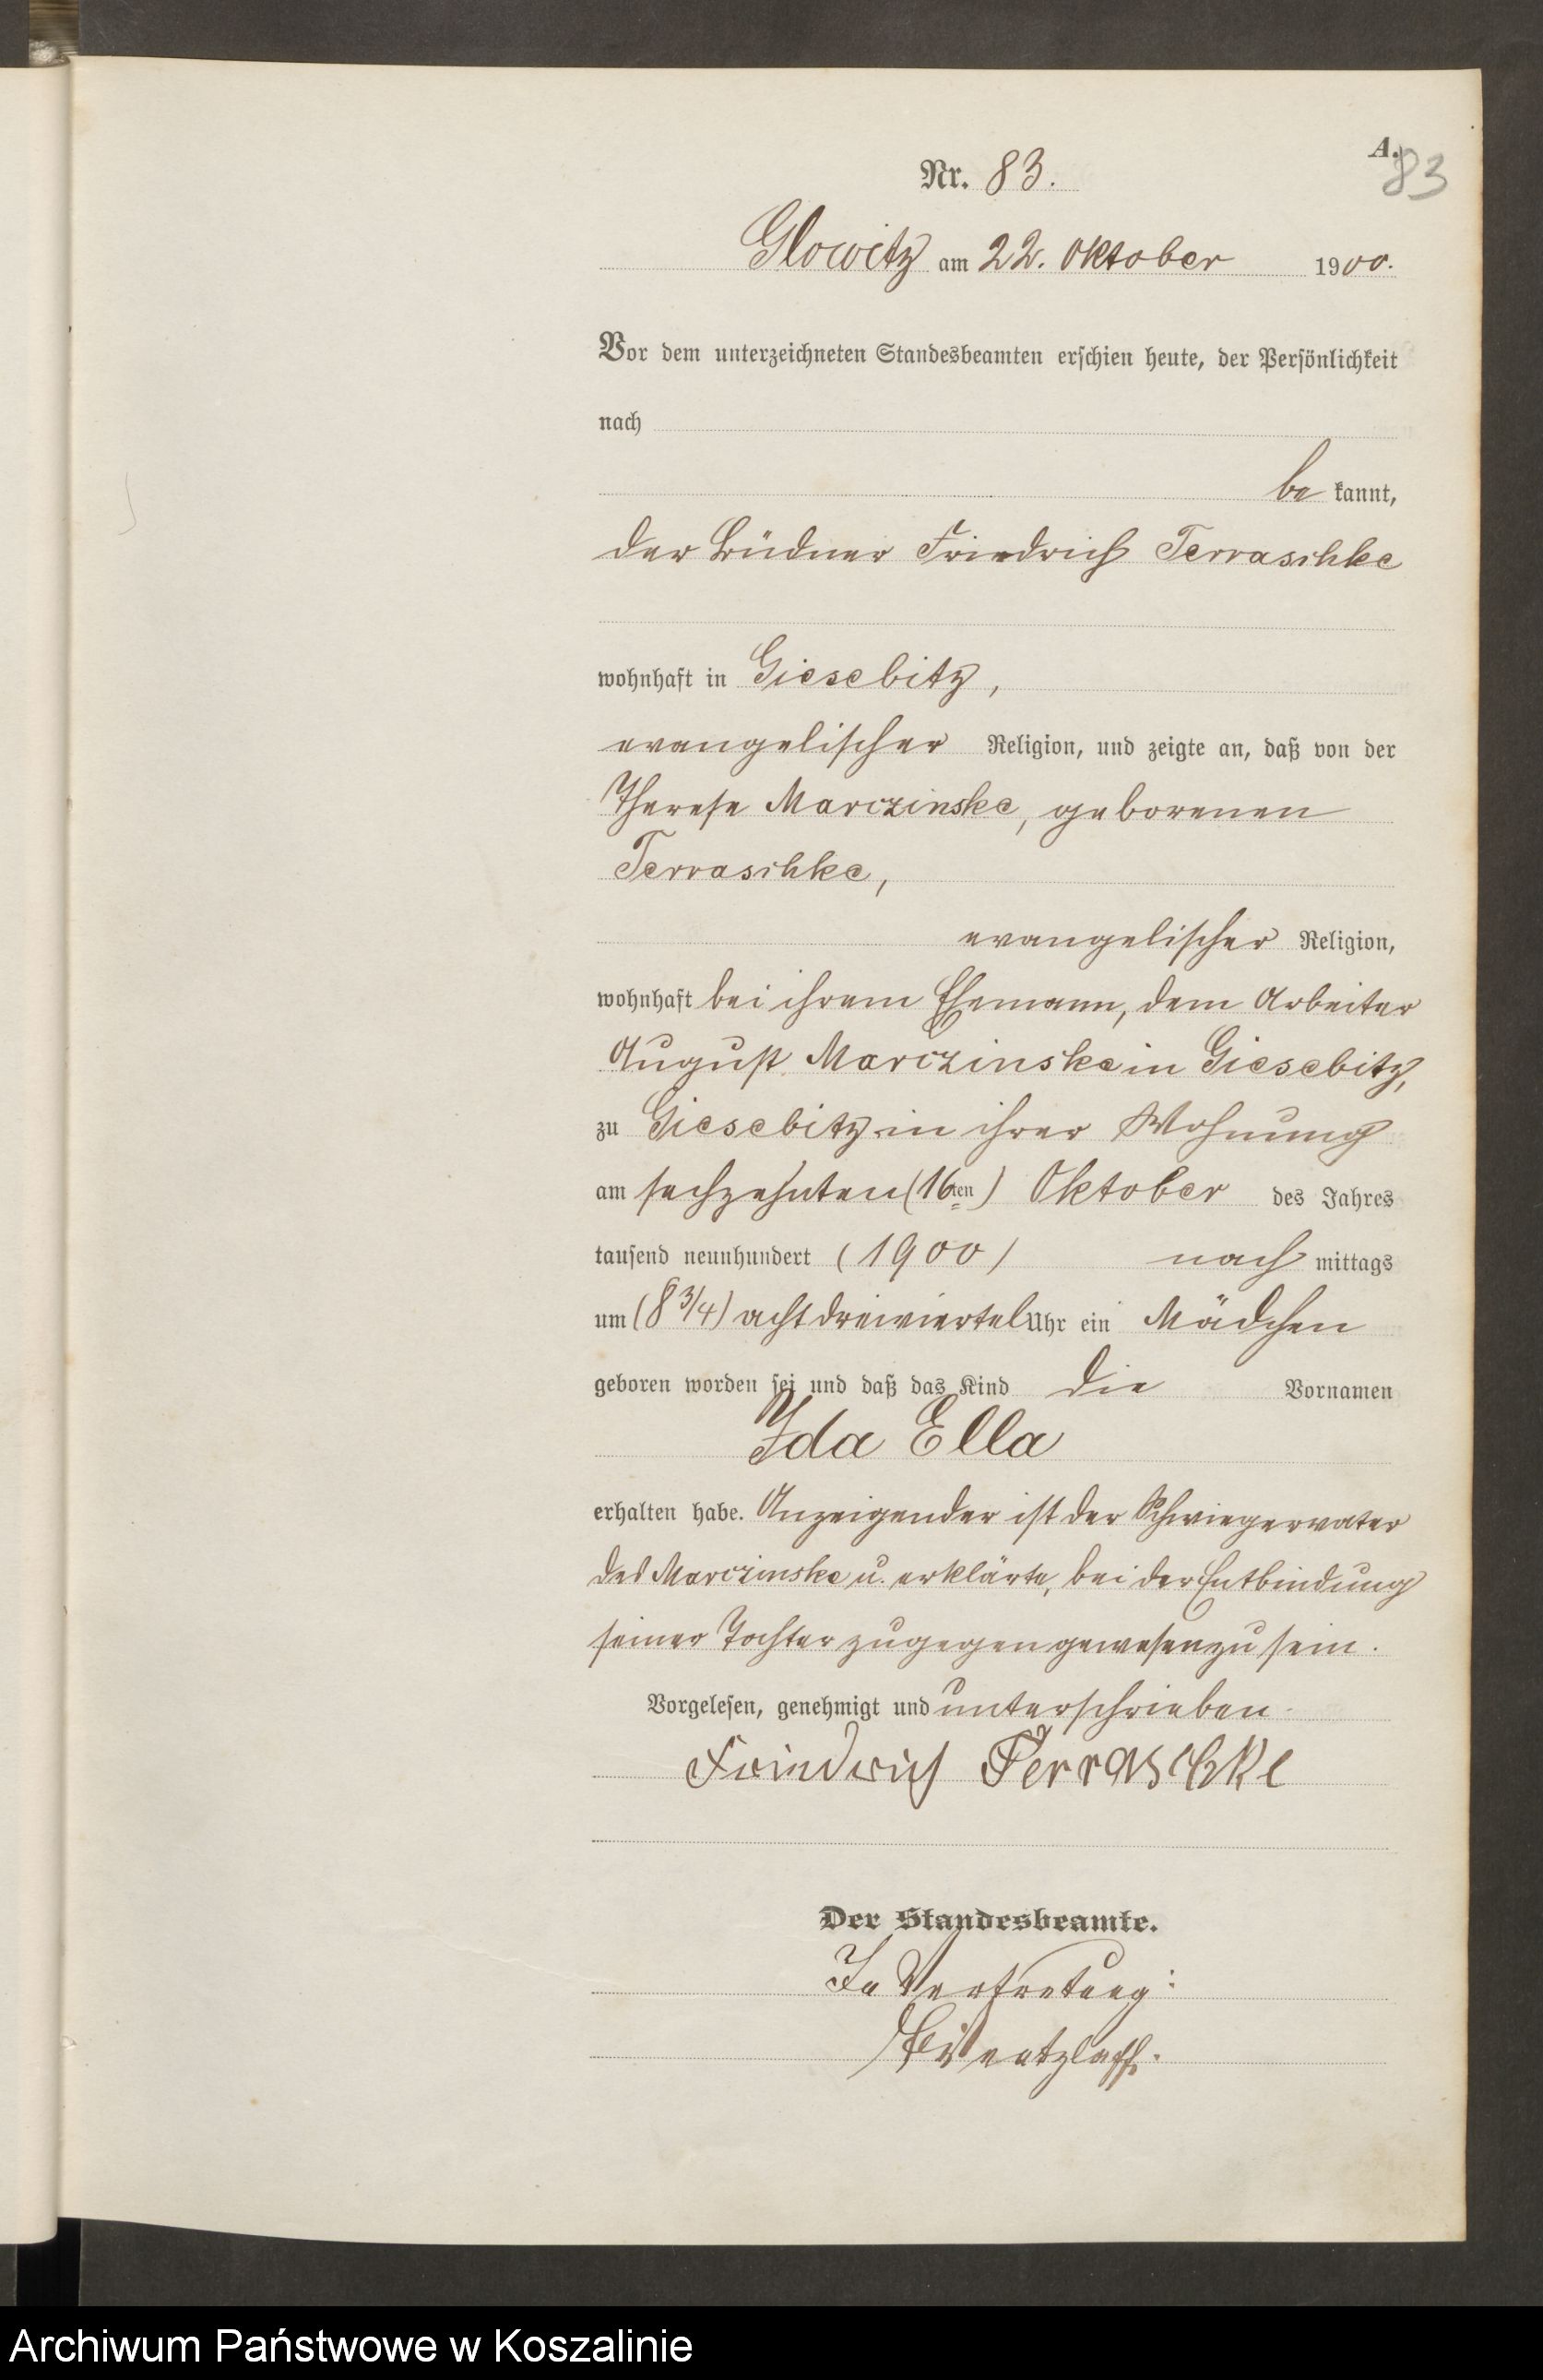 A.
83
Nr. 83.
Glowitz am 22. Oktober 1900.
Vor dem unterzeichneten Standesbeamten erschien heute, der Persönlichkeit
nach
be kannt,
der Büdner Friedrich Terraschke
wohnhaft in Giesebitz,
evangelischer Religion, und zeigte an, daß von der
Therese Marczinske, geborenen
Terraschke,
evangelischer Religion,
wohnhaft bei ihrem Ehemann, dem Arbeiter
August Marczinske in Giesebitz,
zu Giesebitz in ihrer Wohnung
am sechzehnten (16ten) Oktober des Jahres
tausend neunhundert (1900) nach mittags
um (8 3/4) acht dreiviertel Uhr ein Mädchen
geboren worden sei und daß das Kind die Vornamen
Ida Ella
erhalten habe. Anzeigender ist der Schwiegervater
des Marczinske u. erklärte, bei der Entbindung
seiner Tochter zugegen gewesen zu sein.
Vorgelesen, genehmigt und unterschrieben.
Friedrich Terraschke
Der Standesbeamte.
In Vertretung:
Ventzlaff.
Archiwum Państwowe w Koszalinie